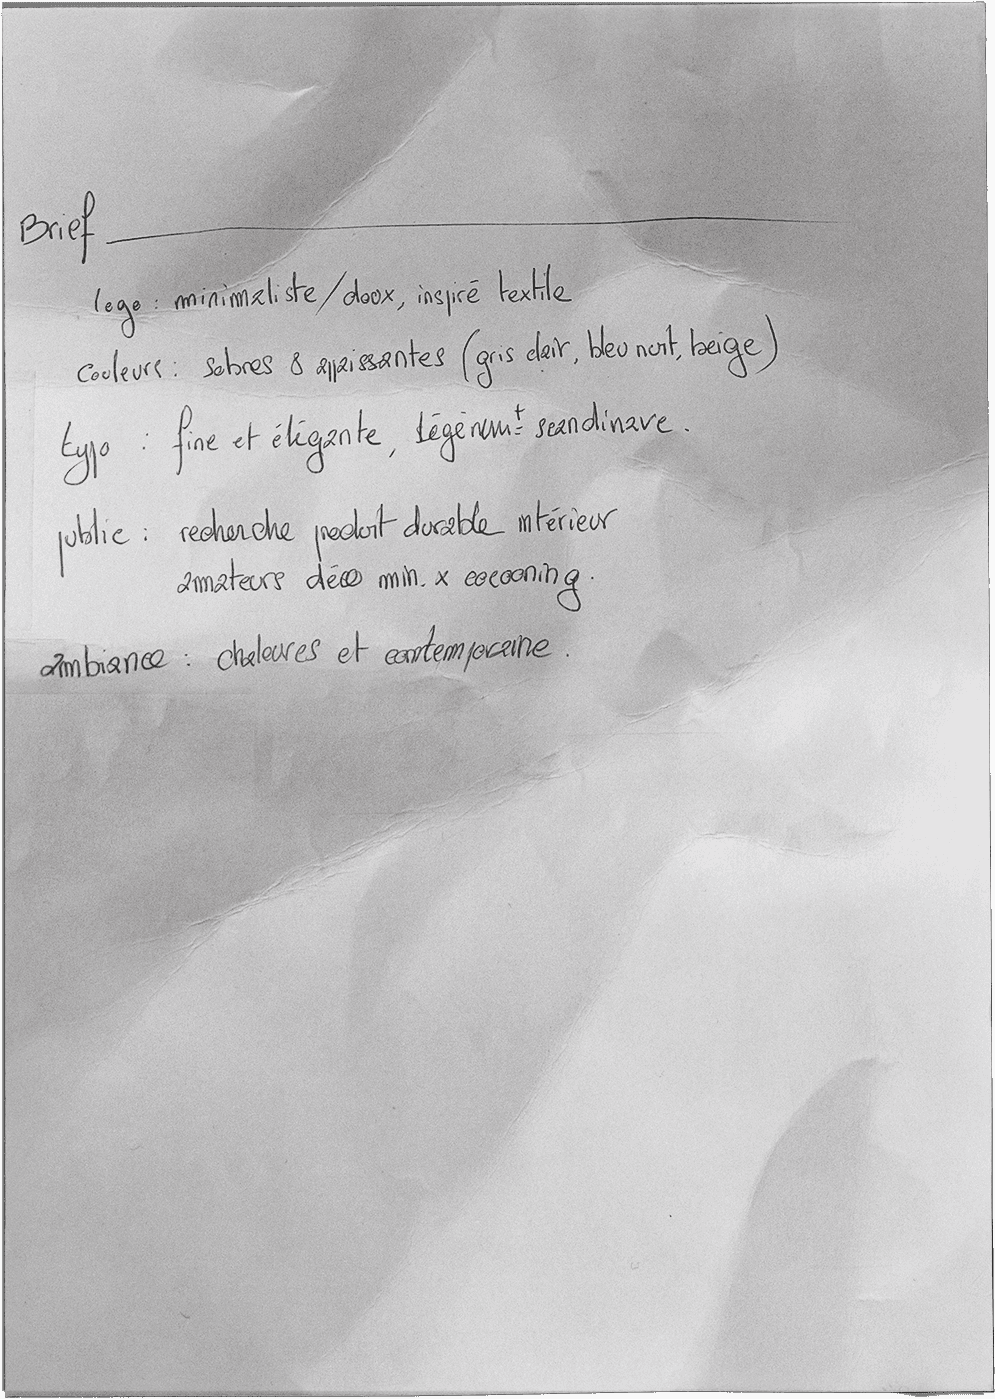 Brief
logo : minimaliste/doux, inspiré textile
couleurs : sobres & apaissantes (gris clair, bleu nuit, beige)
typo : fine et élégante, légèrem^t scandinave.
public : recherche produit durable intérieur
amateurs déco min. x cocooning.
ambiance : chaleures et contemporaine.